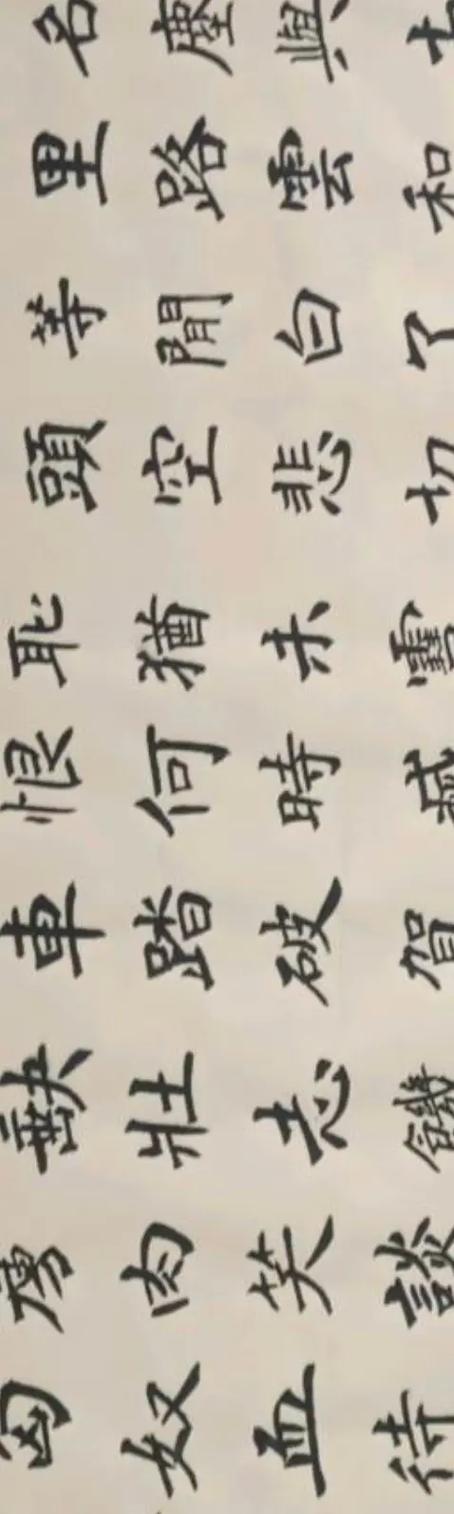 名塵與土
里路雲和
等閒白了
頭空悲切
恥猶未䨮
恨何時滅
車踏破賀
缺壯志饑
虜肉笑談
匈奴血待